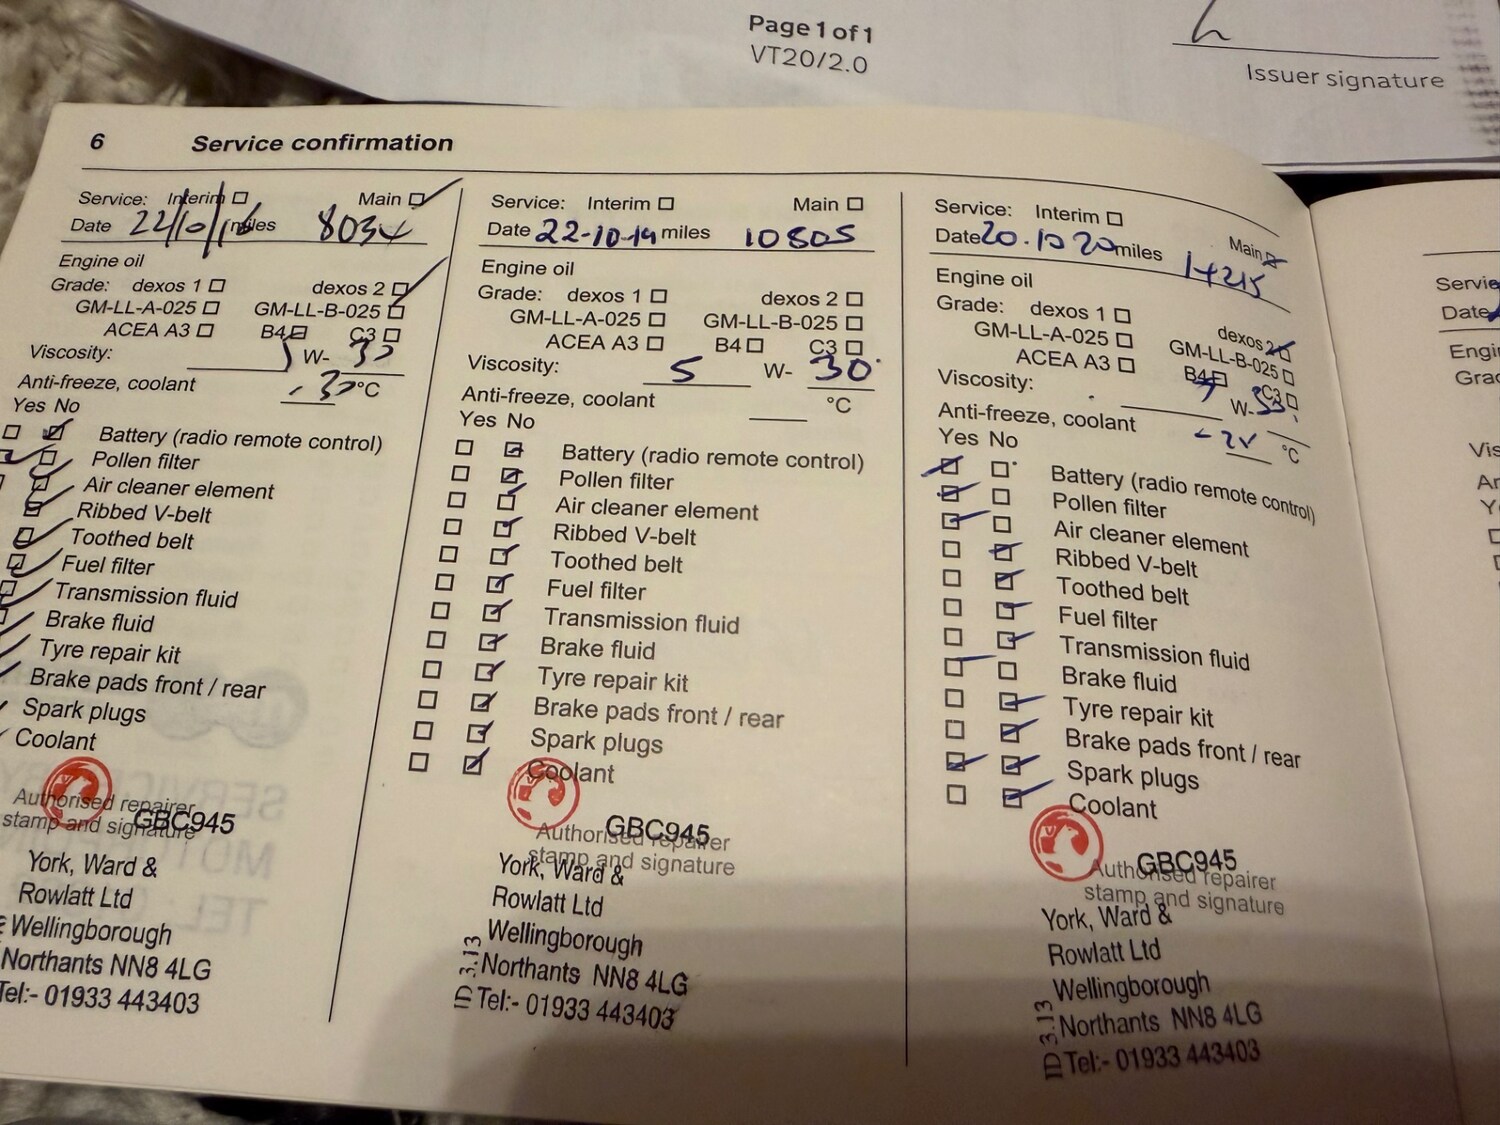 Page 1 of 1
VT20/2.0
Issuer signature
6 Service confirmation
Service: Interim Main
Date 22/10/16 miles 8034
Engine oil
Grade: dexos 1 dexos 2
GM-LL-A-025 GM-LL-B-025
ACEA A3 B4 C3
Viscosity: 5 W- 30
Anti-freeze, coolant -37 °C
Yes No
Battery (radio remote control)
Pollen filter
Air cleaner element
Ribbed V-belt
Toothed belt
Fuel filter
Transmission fluid
Brake fluid
Tyre repair kit
Brake pads front / rear
Spark plugs
Coolant
Authorised repairer
stamp and signature
GBC945
York, Ward &
Rowlatt Ltd
Wellingborough
Northants NN8 4LG
Tel:- 01933 443403
Service: Interim Main
Date 22-10-19 miles 10805
Engine oil
Grade: dexos 1 dexos 2
GM-LL-A-025 GM-LL-B-025
ACEA A3 B4 C3
Viscosity: 5 W- 30
Anti-freeze, coolant °C
Yes No
Battery (radio remote control)
Pollen filter
Air cleaner element
Ribbed V-belt
Toothed belt
Fuel filter
Transmission fluid
Brake fluid
Tyre repair kit
Brake pads front / rear
Spark plugs
Coolant
Authorised repairer
stamp and signature
GBC945
York, Ward &
Rowlatt Ltd
Wellingborough
Northants NN8 4LG
Tel:- 01933 443403
ID 3.13
Service: Interim Main
Date 20.10 20 miles 14215
Engine oil
Grade: dexos 1 dexos 2
GM-LL-A-025 GM-LL-B-025
ACEA A3 B4 C3
Viscosity: W-
Anti-freeze, coolant °C
Yes No
Battery (radio remote control)
Pollen filter
Air cleaner element
Ribbed V-belt
Toothed belt
Fuel filter
Transmission fluid
Brake fluid
Tyre repair kit
Brake pads front / rear
Spark plugs
Coolant
Authorised repairer
stamp and signature
GBC945
York, Ward &
Rowlatt Ltd
Wellingborough
Northants NN8 4LG
Tel:- 01933 443403
ID 3.13
Date